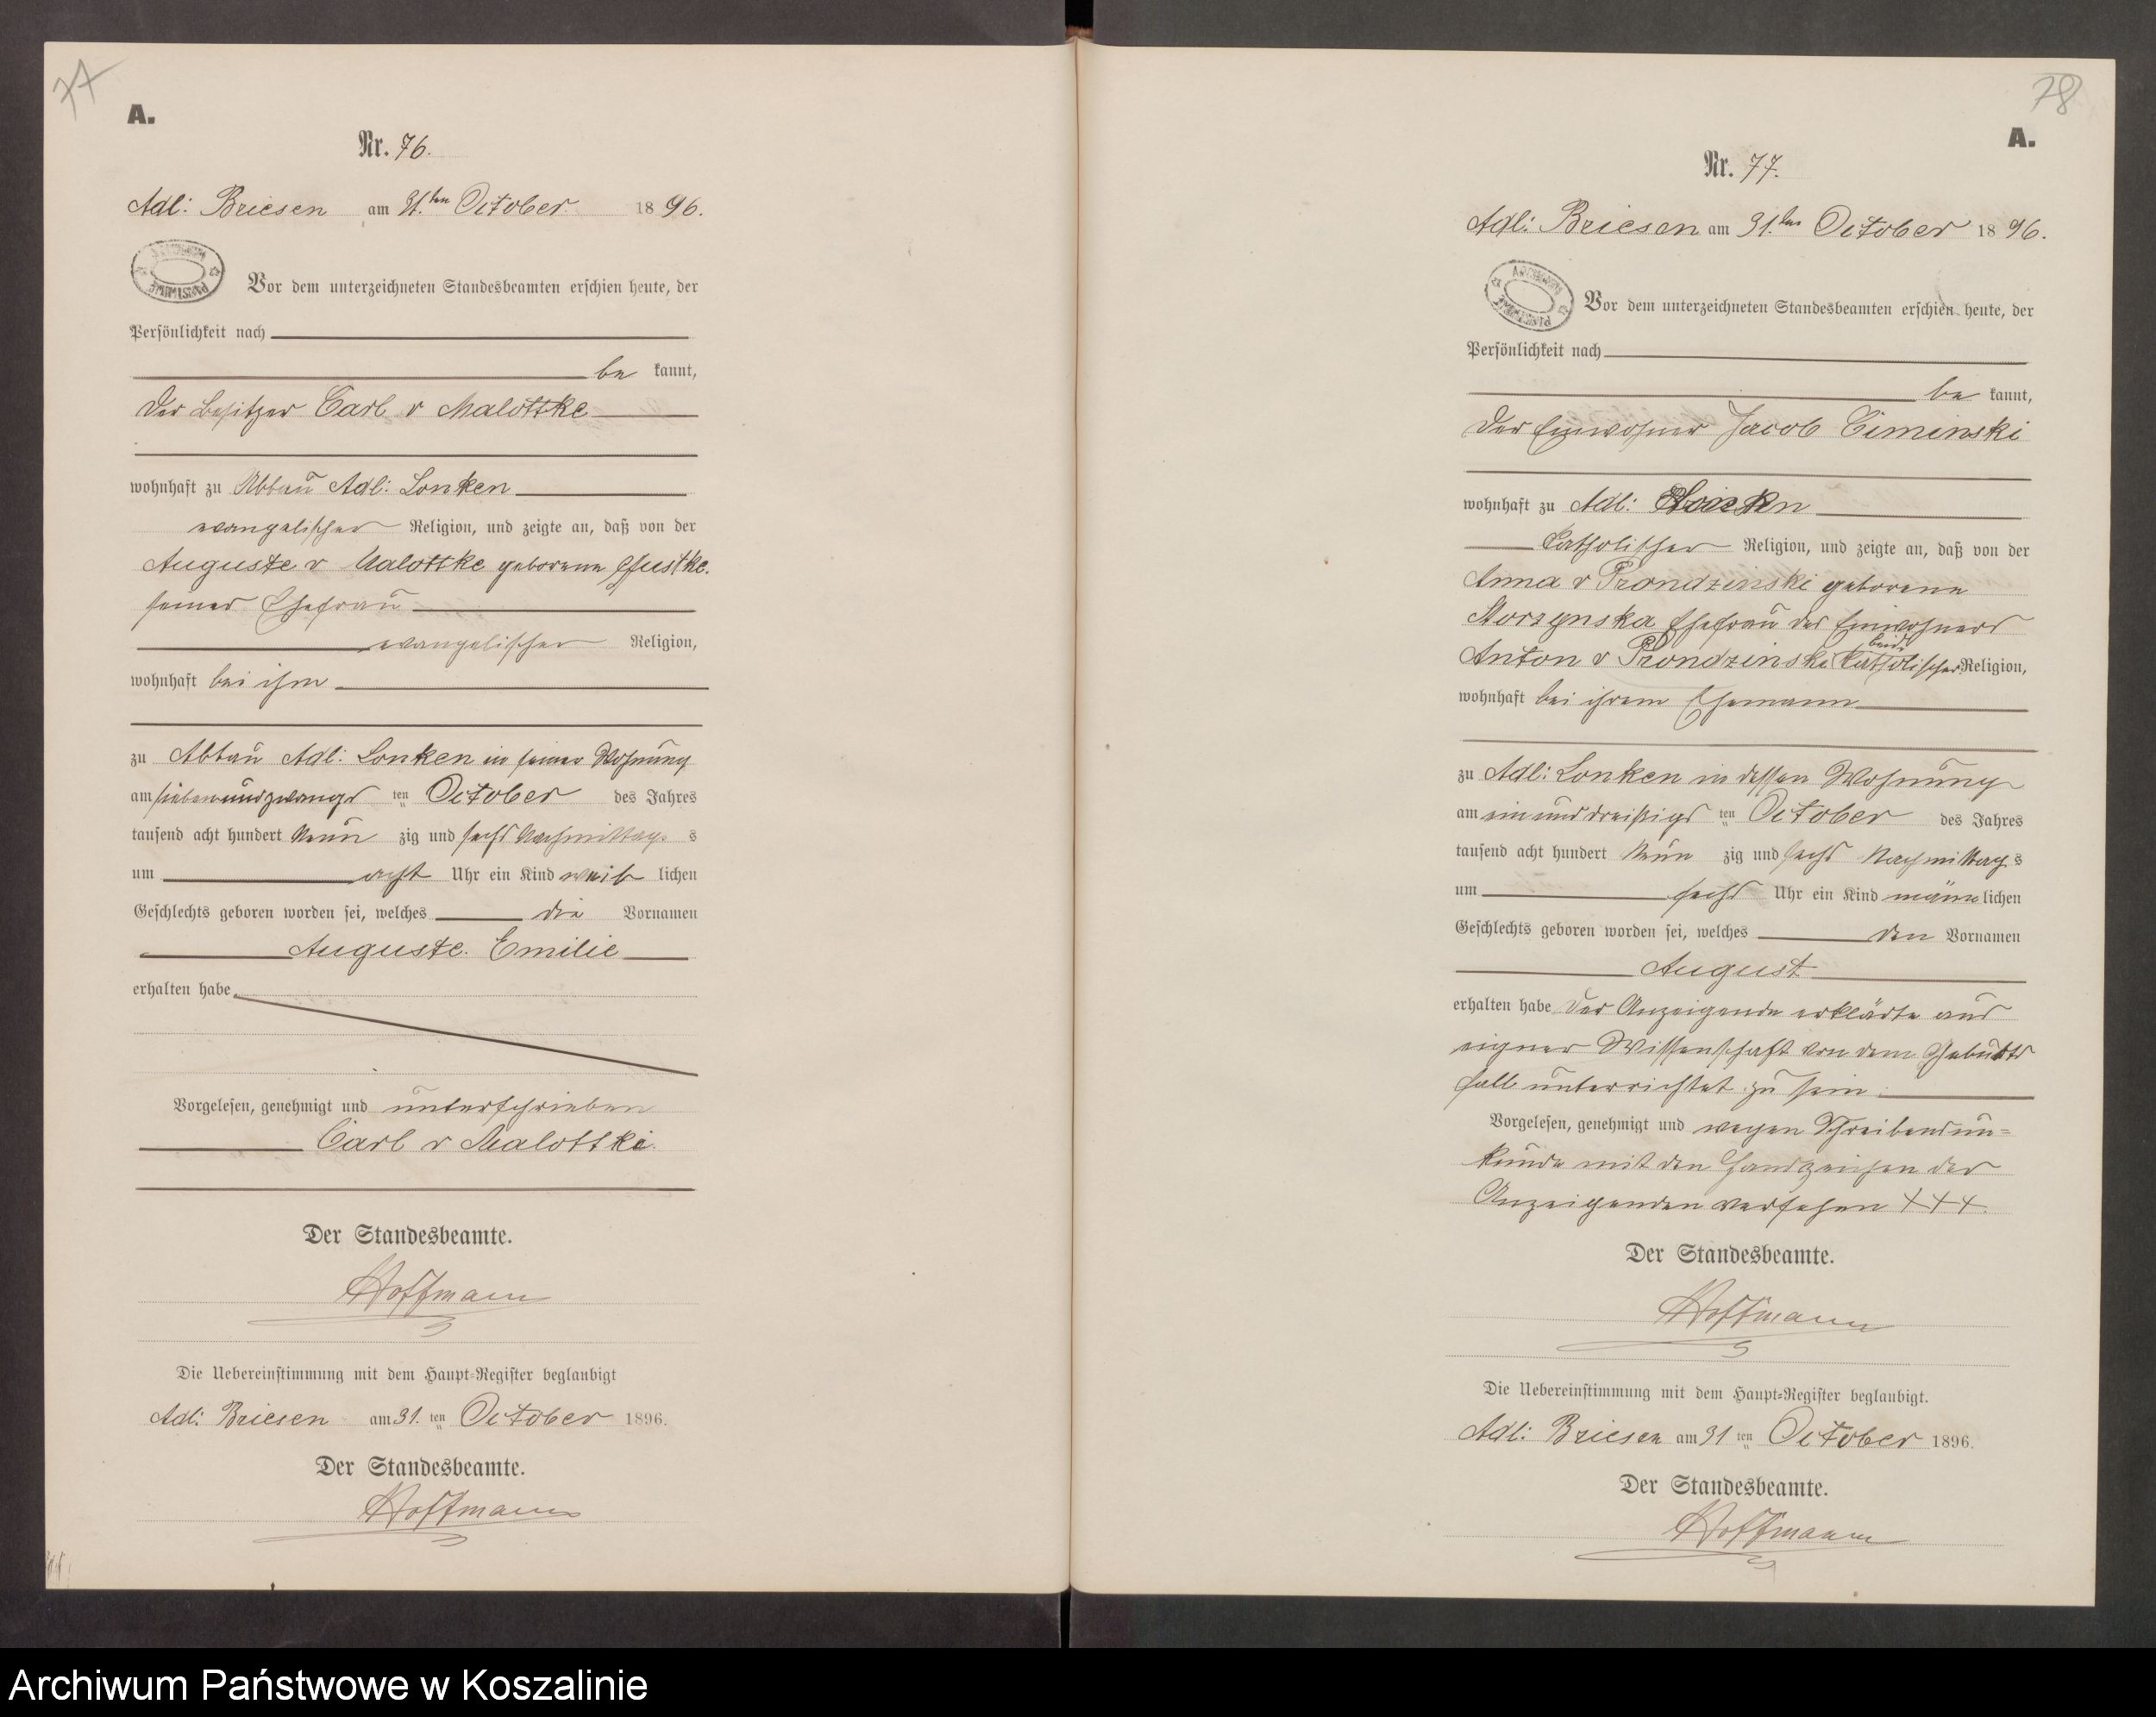 77
A.
Nr. 76.
Adl: Briesen am 31.ten October 1896.
Vor dem unterzeichneten Standesbeamten erschien heute, der
Persönlichkeit nach
be kannt,
der Besitzer Carl v Malottke
wohnhaft zu Abbau Adl: Lonken
evangelischer Religion, und zeigte an, daß von der
Auguste v Malottke geborene
seiner Ehefrau
evangelischer Religion,
wohnhaft bei ihm
zu Abbau Adl: Lonken in seiner Wohnung
am siebenundzwanzigs ten October des Jahres
tausend acht hundert neun zig und sechs Nachmittags s
um acht Uhr ein Kind weib lichen
Geschlechts geboren worden sei, welches die Vornamen
Auguste. Emilie
erhalten habe
Vorgelesen, genehmigt und unterschrieben
Carl v Malottki.
Der Standesbeamte.
Hoffmann
Die Uebereinstimmung mit dem Haupt-Register beglaubigt
Adl: Briesen am 31. ten October 1896.
Der Standesbeamte.
Hoffmann
78
A.
Nr. 77.
Adl: Briesen am 31.ten October 1896.
ARCHIWUM PAŃSTWOWE
Vor dem unterzeichneten Standesbeamten erschien heute, der
Persönlichkeit nach
be kannt,
der Einwohner Jacob Ciminski
wohnhaft zu Adl:
katholischer Religion, und zeigte an, daß von der
Anna v Prondzinski geborene
Ehefrau des Einwohners
Anton v Prondzinski beide katholischer Religion,
wohnhaft bei ihrem Ehemann
zu Adl: Lonken in dessen Wohnung
am einunddreißigs ten October des Jahres
tausend acht hundert neun zig und sechs Nachmittag s
um sechs Uhr ein Kind männ lichen
Geschlechts geboren worden sei, welches den Vornamen
August
erhalten habe Der Anzeigende erklärte aus
eigner Wissenschaft von dem Geburts
fall unterrichtet zu sein.
Vorgelesen, genehmigt und wegen Schreibensun=
kunde mit den Handzeichen des
Anzeigenden versehen +++.
Der Standesbeamte.
Hoffmann
Die Uebereinstimmung mit dem Haupt-Register beglaubigt.
Adl: Briesen am 31 ten October 1896.
Der Standesbeamte.
Hoffmann
Archiwum Państwowe w Koszalinie